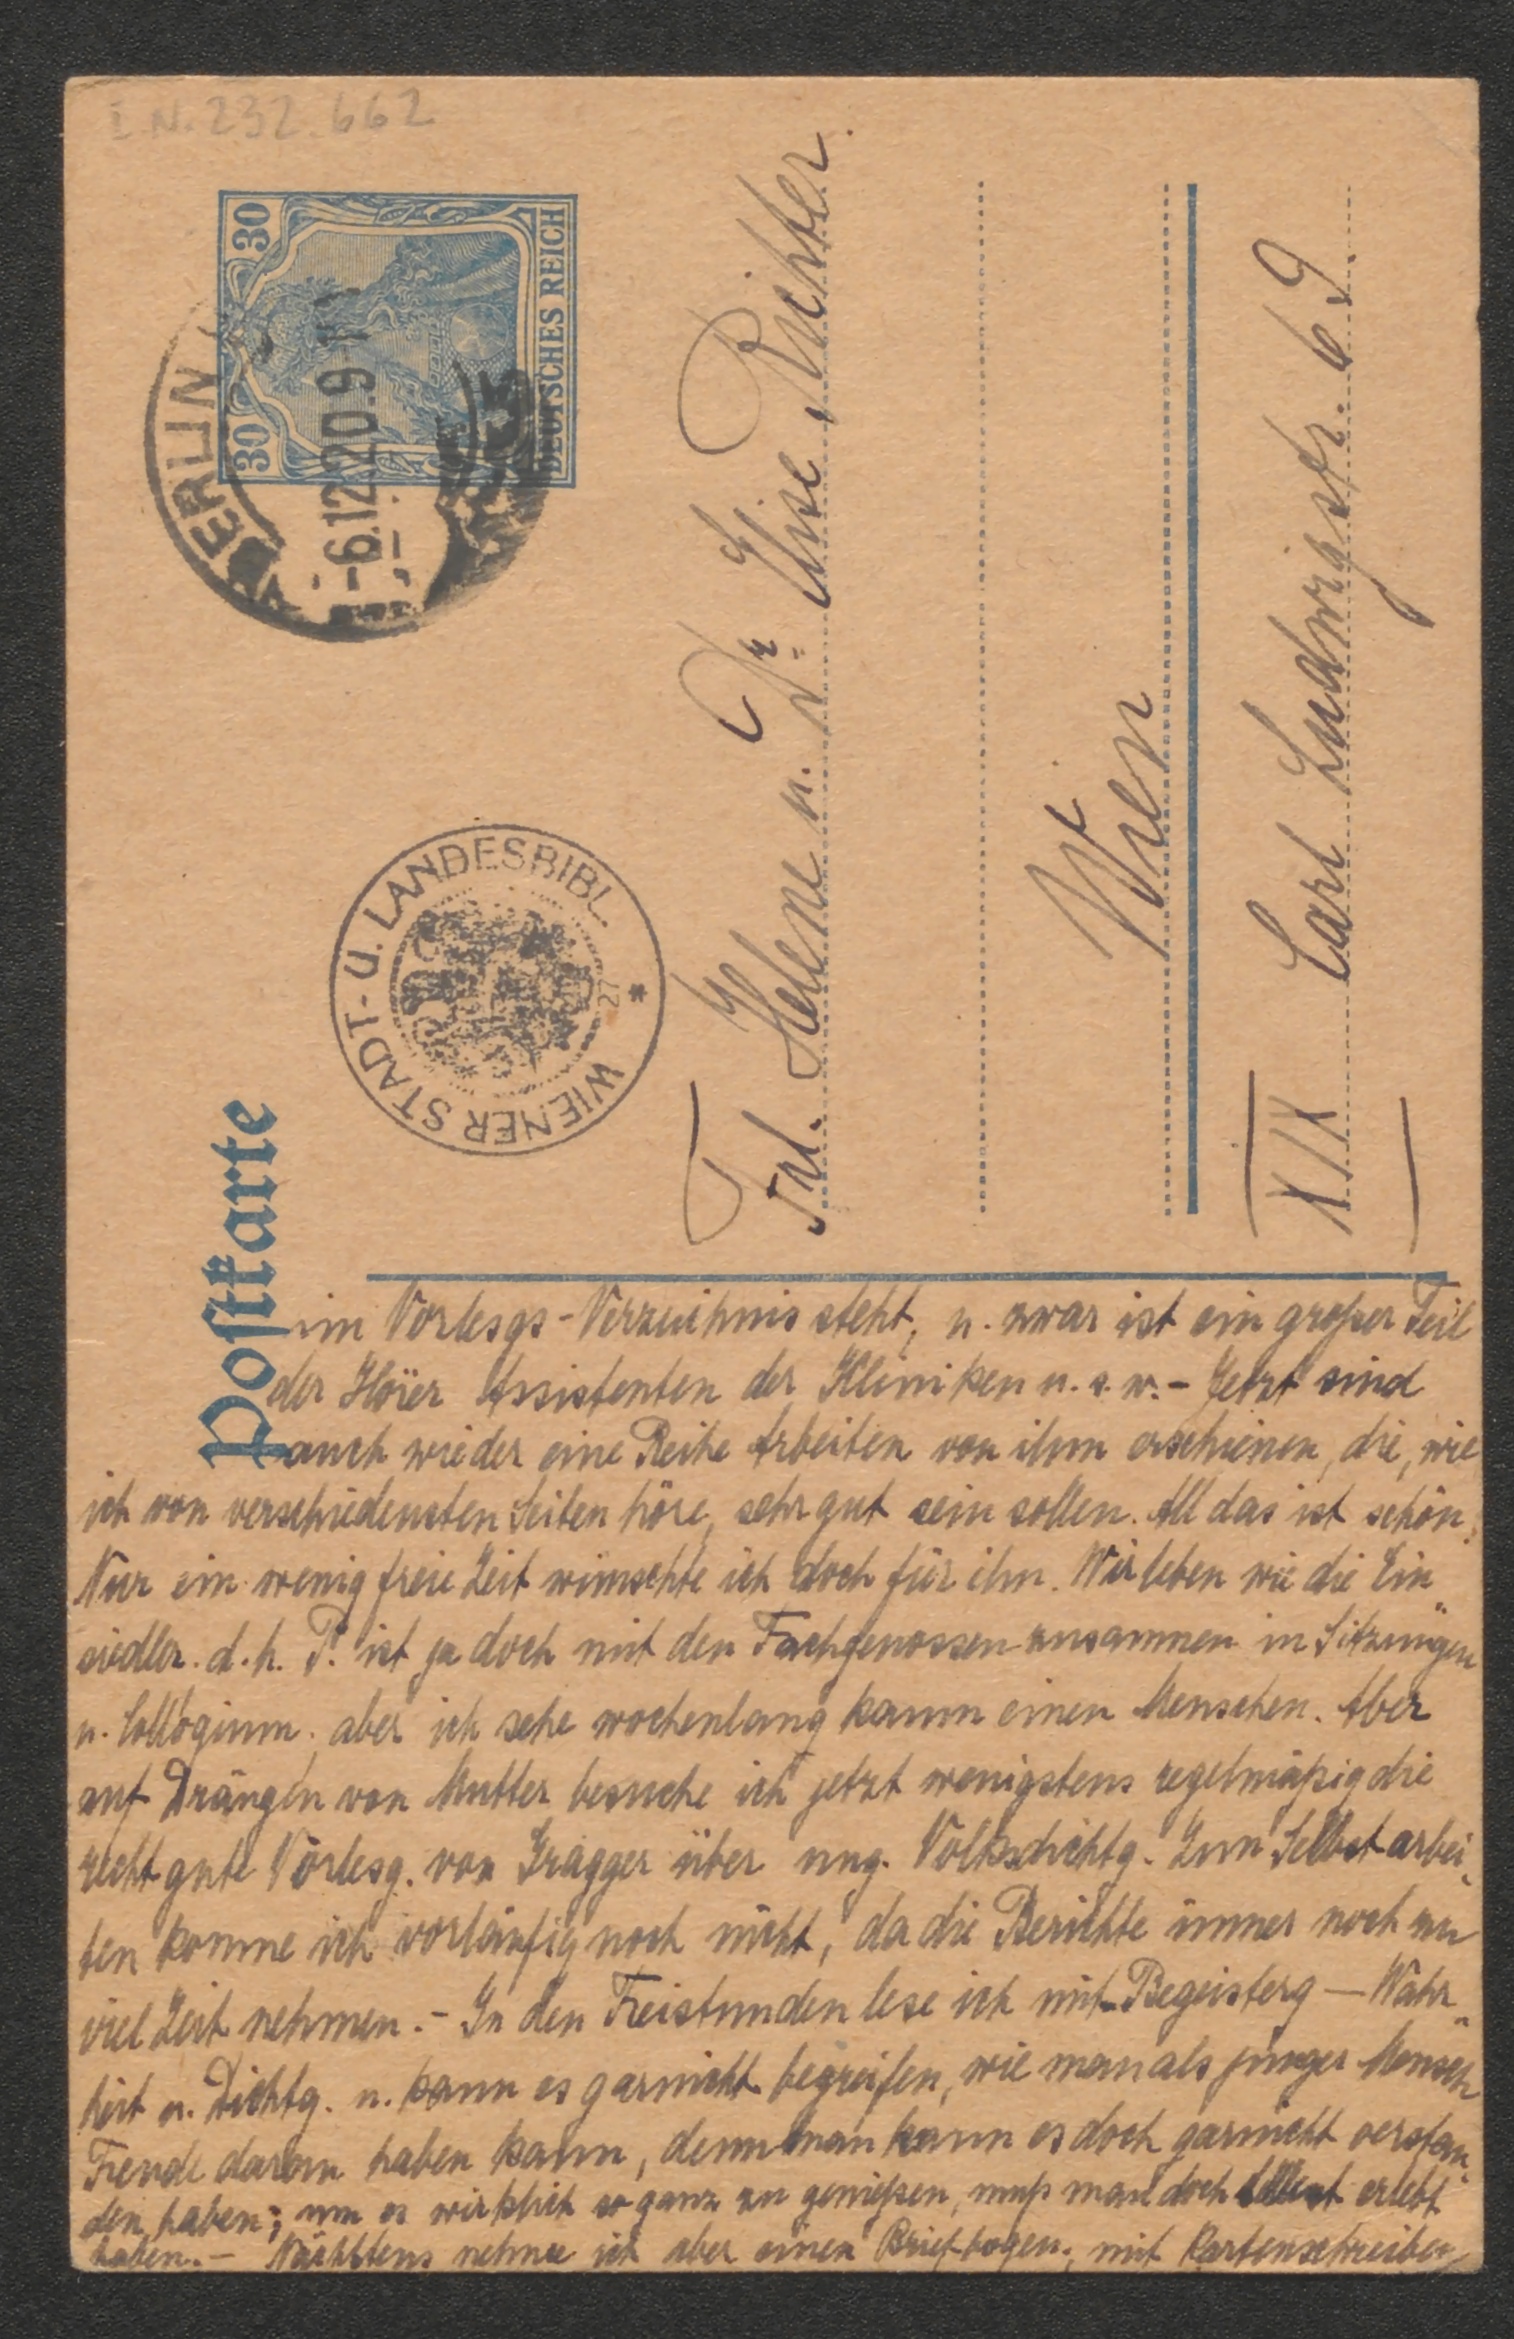 I.N. 232.662
Postkarte
30 30
DEUTSCHES REICH
BERLIN
-6.12.20.9-10
WIENER STADT- U. LANDESBIBL.
27
Frl. Helene u. Dr Elise Richter
Wien
XIX Carl Ludwigstr. 69.
im Vorlesgs-Verzeichnis steht, u. zwar ist ein großer Teil
der Hörer Assistenten der Kliniken u. s. w. - Jetzt sind
auch wieder eine Reihe Arbeiten von ihm erschienen, die, wie
ich von verschiedensten Seiten höre, sehr gut sein sollen. All das ist schön.
Nur ein wenig freie Zeit wünschte ich doch für ihn. Wir leben wie die Ein-
siedler. d. h. P. ist ja doch mit den Fachgenossen zusammen in Sitzungen
u. Colloquium, aber ich sehe wochenlang kaum einen Menschen. Aber
auf Drängen von Mutter besuche ich jetzt wenigstens regelmäßig die
recht gute Vorlesg. von Gragger über ung. Volksdichtg. Zum Selbstarbei-
ten komme ich vorläufig noch nicht, da die Berichte immer noch zu
viel Zeit nehmen. - In den Freistunden lese ich mit Begeisterg — Wahr-
heit u. Dichtg. u. kann es garnicht begreifen, wie man als junger Mensch
Freude daran haben kann, denn man kann es doch garnicht verstan-
den haben; um es wirklich so ganz zu genießen, muß man doch selbst erlebt
haben. - Nächstens nehme ich aber einen Briefbogen, mit Kartenschreiben